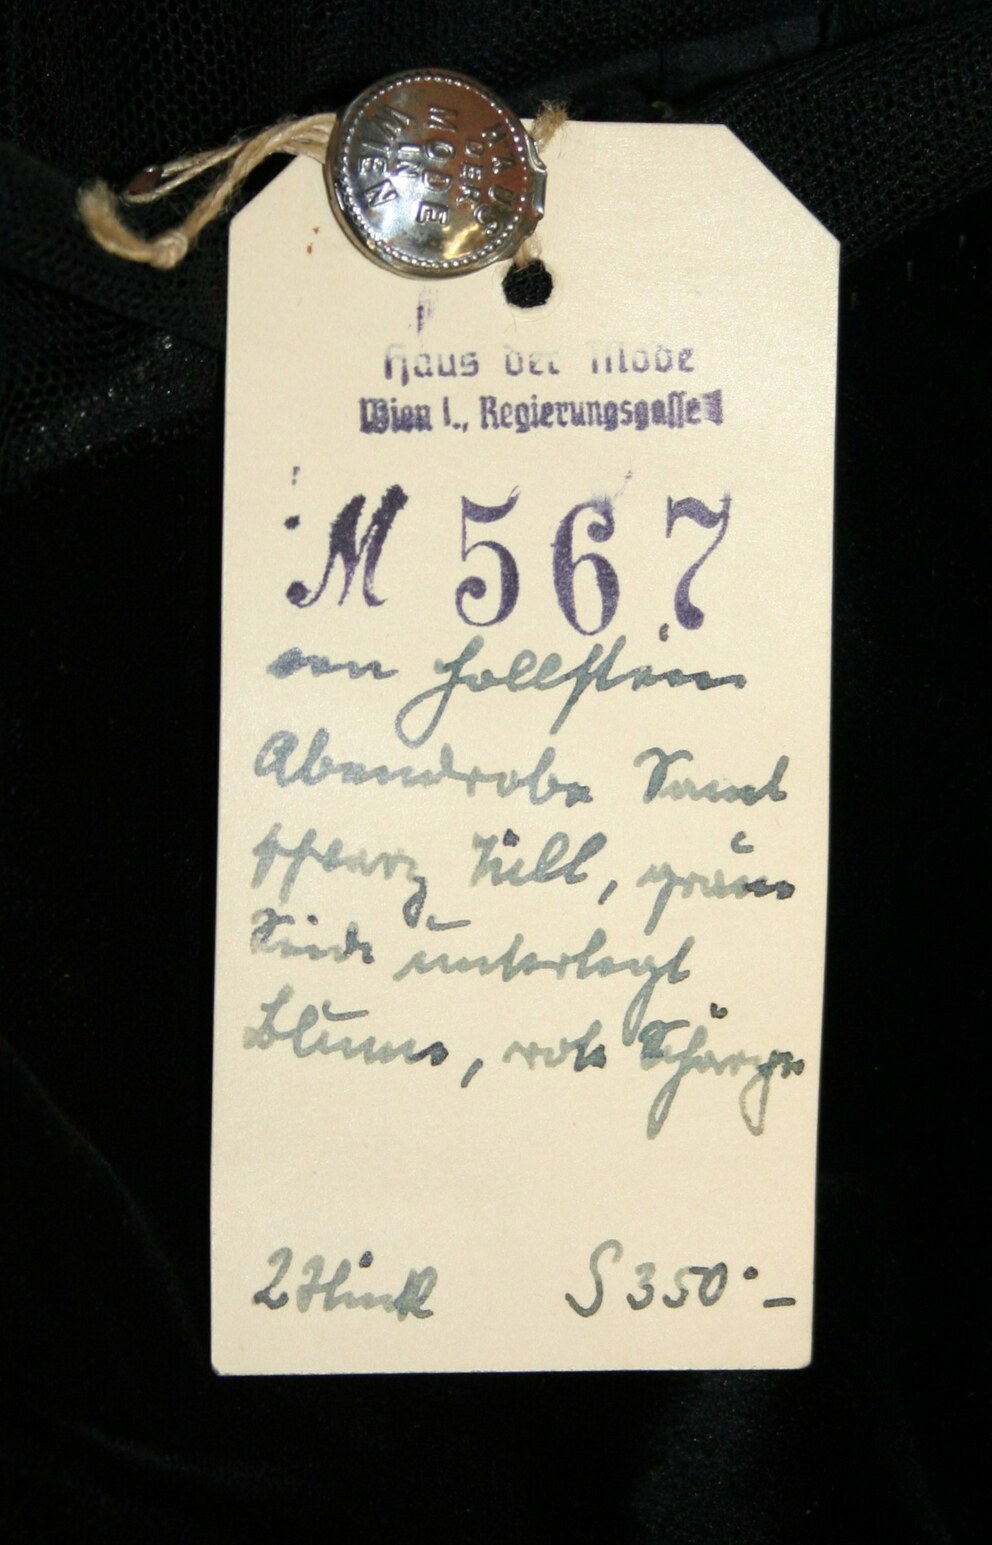 HAUS
DER
MODE
IN
WIEN
Haus der Mode
Wien I., Regierungsgasse 1
M 567
von Hollstein
Abendrobe Samt
schwarz Tüll, grüne
Seide unterlegt
Blume, rote Schärpe
2 Stück S 350.-